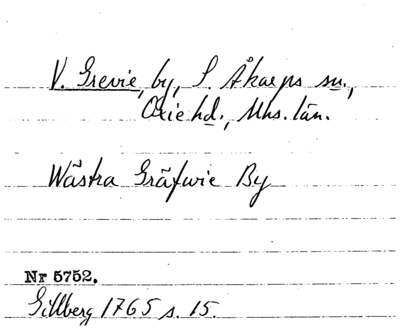 V. Grevie, by, S. Åkarps sn.,
Oxie hd., Mhs. län.
Wästra Gräfwie By
Nr 5752.
Gillberg 1765 s. 15.